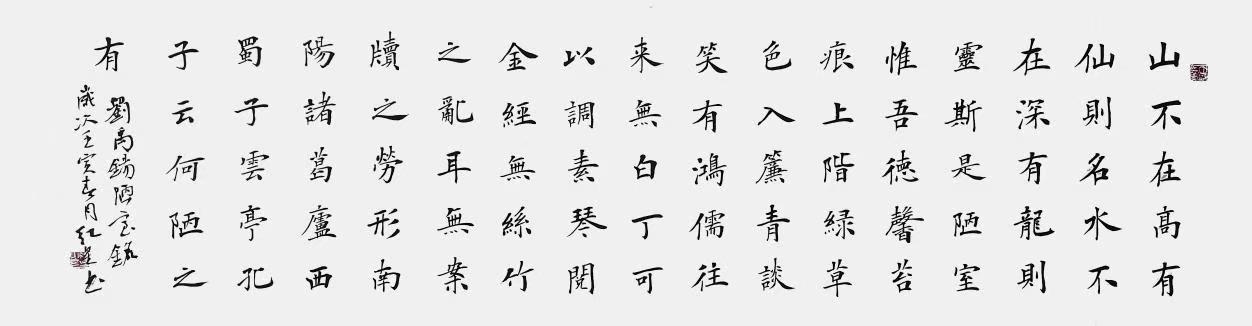 山不在高有
仙則名水不
在深有龍則
靈斯是陋室
惟吾德馨苔
痕上階緑草
色入簾青談
笑有鴻儒往
来無白丁可
以調素琴閱
金經無絲竹
之亂耳無案
牘之勞形南
陽諸葛廬西
蜀子雲亭孔
子云何陋之
有
劉禹錫陋室銘
歲次壬寅春月紅星书